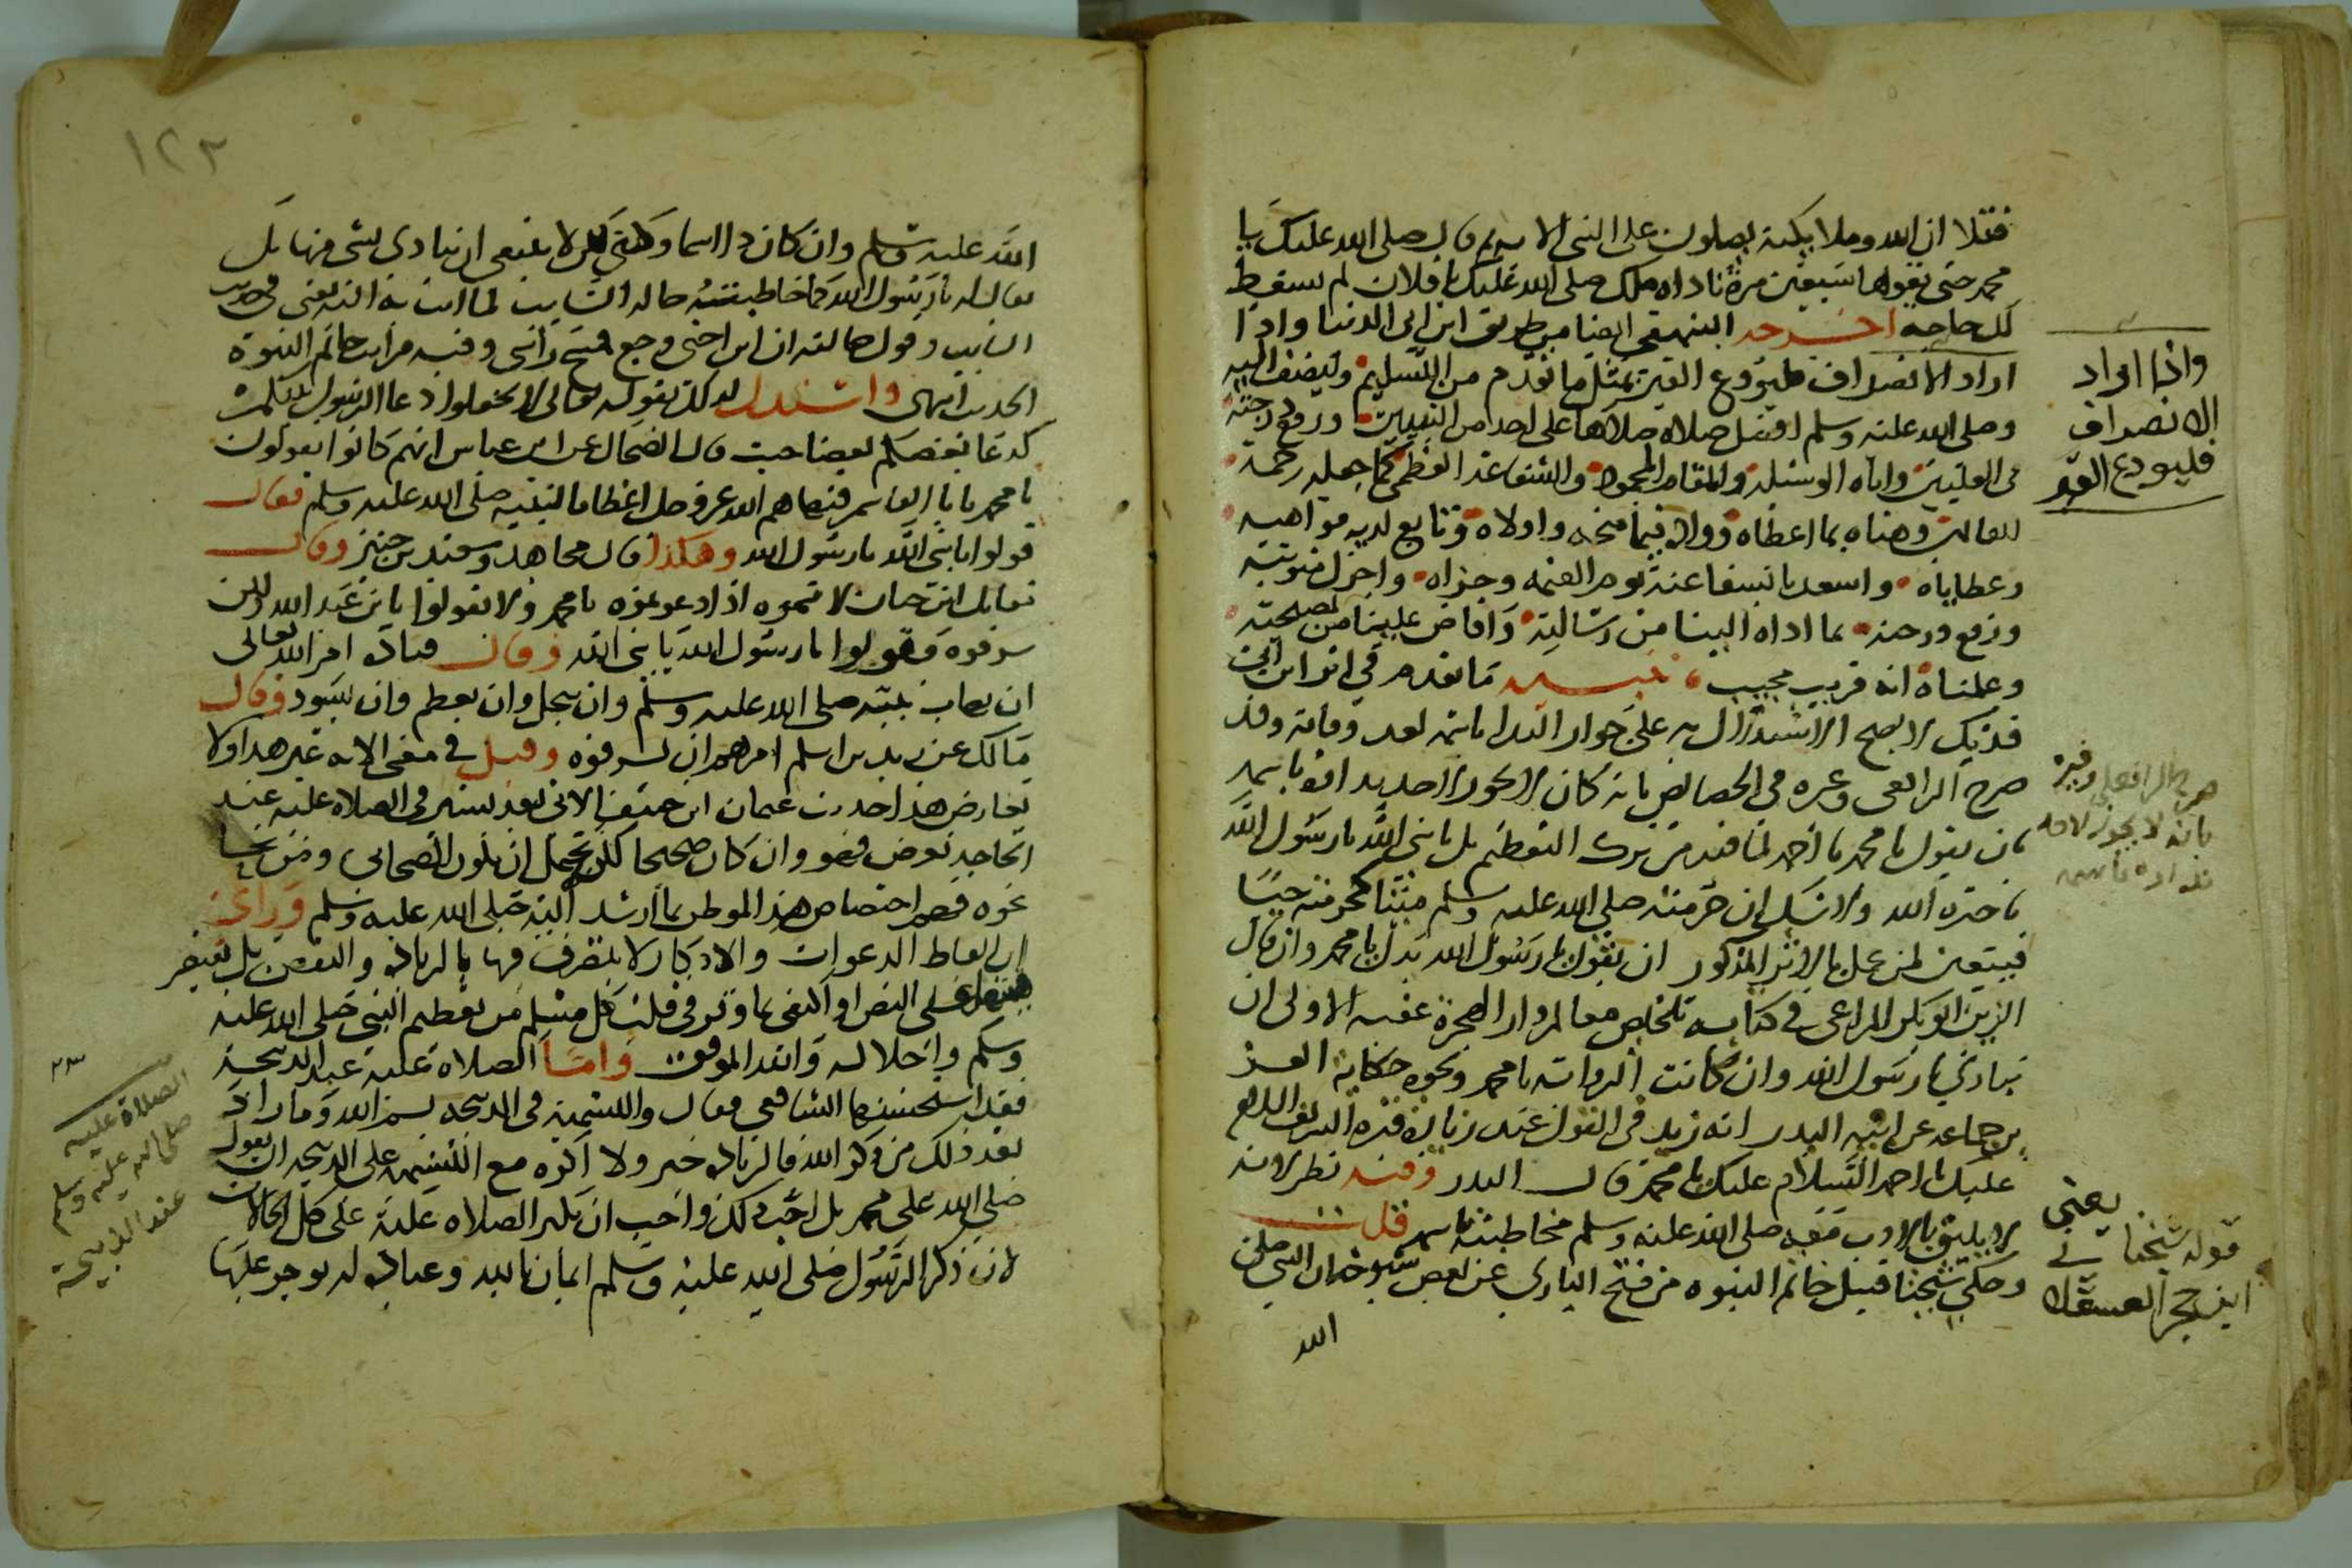 فتلا ان الله وملايكته يصلون على النبي الايه ثم قال صلى الله عليك يا
محمد حتى يقولها سبعين مرة ناداه ملك صلى الله عليك يا فلان لم تسقط
لك حاجة اخرجه البيهقي ايضا من طريق ابن ابي الدنيا واذا
اراد الانصراف فليودع القبر بمثل ما تقدم من التسليم وليضف اليه
وصلى الله عليه وسلم افضل صلاة صلاها على احد من النبيين ورفع درجته
في العليين واتاه الوسيلة والمقام المحمود والشفاعة العظمى كما جعله رحمة
للعالمين وهناه بما اعطاه ووالا فيما منحه واولاه وتابع لديه مواهبه
وعطاياه واسعدنا بشفاعته يوم القيمه وجزاه واجزل مثوبته
ورفع درجته بما اداه الينا من رسالته وافاض علينا من نصيحته
وعلمناه انه قريب مجيب تنبيه ما تقدم في اثر ابن ابي
فديك لا يصح الاستدلال به على جواز الندا باسمه بعد وفاته وقد
صرح الرافعي وغيره في الخصايص بانه كان لا يجوز لاحد يناديه باسمه
بان يقول يا محمد يا احمد لما فيه من ترك التعظيم بل يا نبي الله يا رسول الله
يا خيرة الله ولا شك ان حرمته صلى الله عليه وسلم ميتا كحرمته حيا
فيتعين لمن عمل بالاثر المذكور ان يقول يا رسول الله بدل يا محمد وان قال
الزين ابو بكر المراغي في كتابه تلخيص معالم دار الهجرة عقبه الاولى ان
ينادي يا رسول الله وان كانت الرواية يا محمد ونحوه حكاية العز
بن جماعة عن ابيه البدر انه زيد في القول عند زيارة قبره الشريف السلام
عليك يا احمد السلام عليك يا محمد قال البدر وفيه نظر لانه
لا يليق بالادب معه صلى الله عليه وسلم مخاطبته باسمه قلت
وحكى شيخنا قبيل خاتم النبوه من فتح الباري عن بعض شيوخه ان النبي صلى
الله
واذا اراد
الانصراف
فليودع القبر
صرح الرافعي وغيره
بانه لا يجوز لاحد
نداءه باسمه
يعني
قوله شيخنا
ابن حجر العسقلا
١٢٣
الله عليه وسلم وان كان ذا اسما وكنى لكن لا ينبغي ان ينادى بشي منها بل
يقال له يا رسول الله كما خاطبته خالة السايب لما اتت به اليه يعني في حديث
السايب وقول خالته ان ابن اختي وجع فتح راسي وفيه فرايت خاتم النبوة
الحديث انتهى واستدل لذلك بقوله تعالى لا تجعلوا دعا الرسول بينكم
كدعا بعضكم بعضا حيث قال الضحاك عن ابن عباس انهم كانوا يقولون
يا محمد يا ابا القاسم فنهاهم الله عز وجل اعظاما لنبيه صلى الله عليه وسلم فقال
قولوا يا نبي الله يا رسول الله وهكذا قال مجاهد وسعيد بن جبير وقال
مقاتل ابن حيان لا تسموه اذا دعوتموه يا محمد ولا تقولوا يا بن عبد الله ولكن
شرفوه فقولوا يا رسول الله يا نبي الله وقال قتادة امر الله تعالى
ان يهاب نبيه صلى الله عليه وسلم وان يبجل وان يعظم وان يسود وقال
مالك عن زيد بن اسلم امرهم ان يشرفوه وقيل في معنى الايه غير هذا ولا
يعارض هذا حديث عثمان ابن حنيف الاتي بعد يسير في الصلاة عليه عند
الحاجه تعرض فهو وان كان صحيحا لكن يحتمل ان يكون الصحابي ومن نحا
نحوه فهم اختصاص هذا الموطن بما ارشد اليه صلى الله عليه وسلم وراى
ان الفاظ الدعوات والاذكار لا يتصرف فيها بالزيادة والنقص بل يقتصر
فيها على النص او اكتفى بما وقر في قلب كل مسلم من تعظيم النبي صلى الله عليه
وسلم واجلاله والله الموفق واما الصلاة عليه عند الذبيحة
فقد استحسنها الشافعي فقال والتسمية في الذبيحة بسم الله وما زاد
بعد ذلك من ذكر الله فالزيادة خير ولا اكره مع التسميه على الذبيحه ان يقول
صلى الله على محمد بل احب ذلك واحب ان يكثر الصلاه عليه على كل الحالات
لان ذكر الرسول صلى الله عليه وسلم ايمان بالله وعبادة له يوجر عليها
الصلاة عليه
صلى الله عليه وسلم
عند الذبيحة